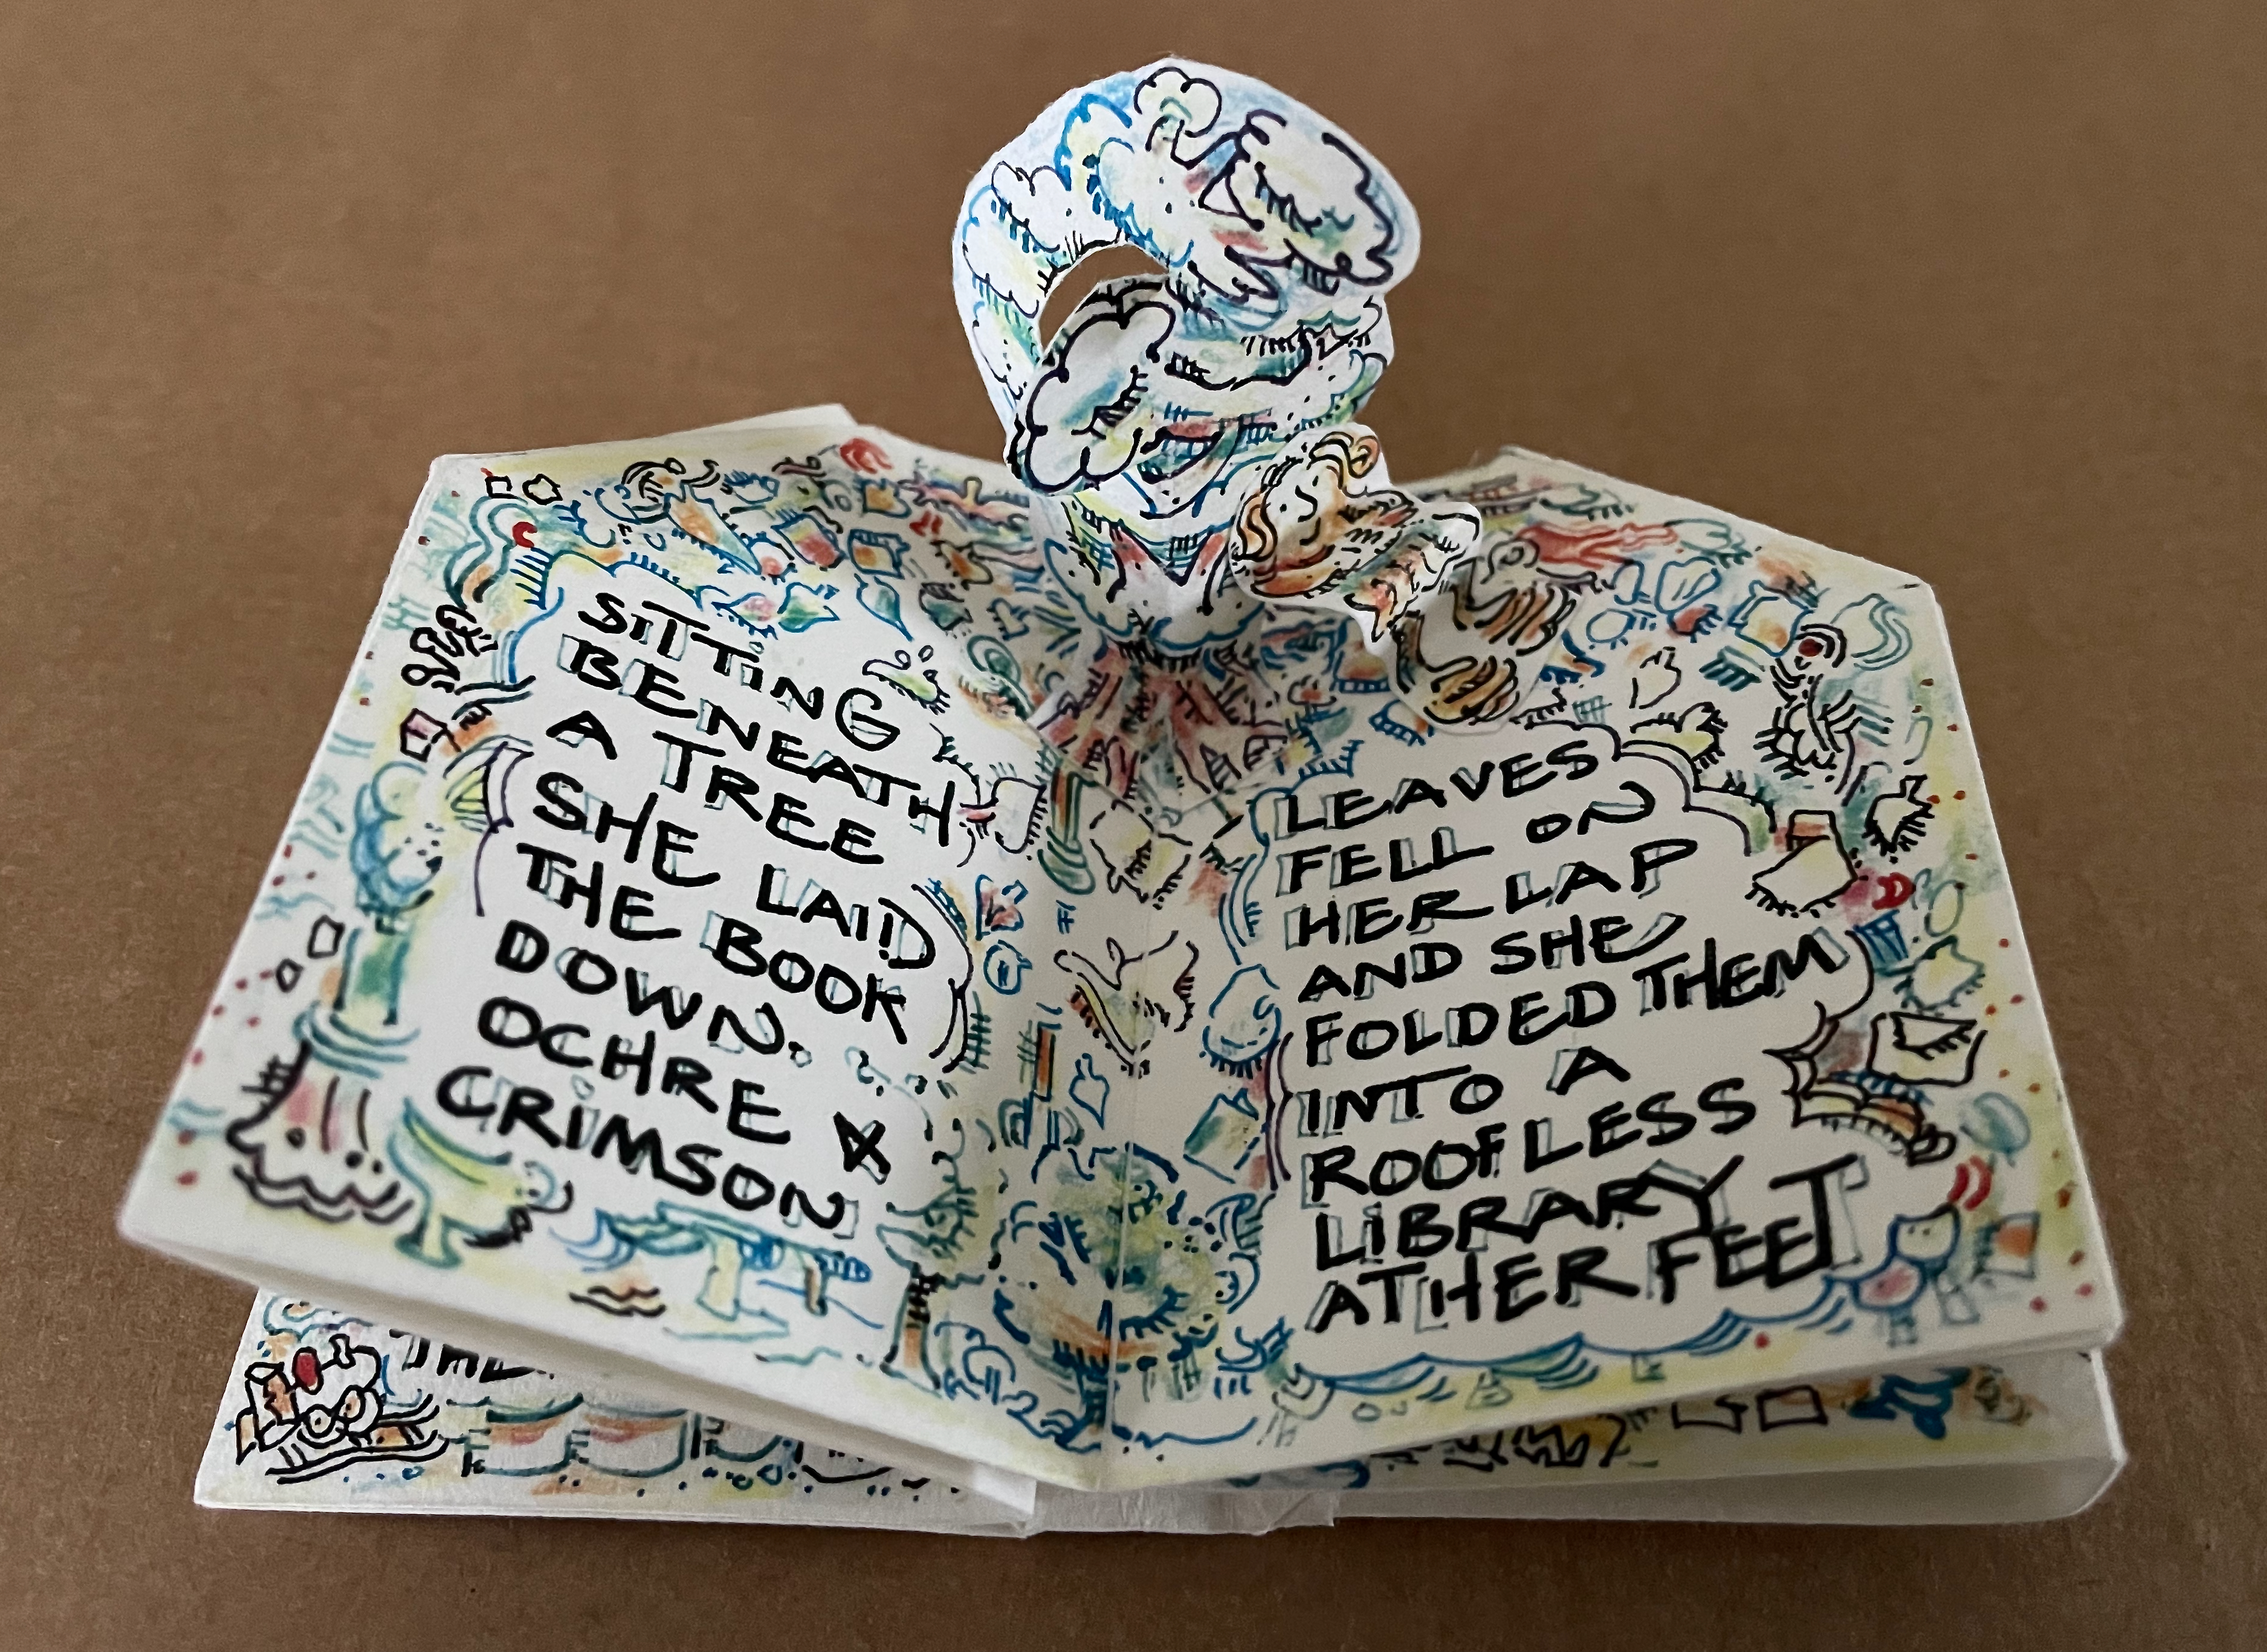 SITTING
BENEATH
A TREE
SHE LAID
THE BOOK
DOWN.
OCHRE &
CRIMSON
LEAVES
FELL ON
HER LAP
AND SHE
FOLDED THEM
INTO A
ROOFLESS
LIBRARY
AT HER FEET